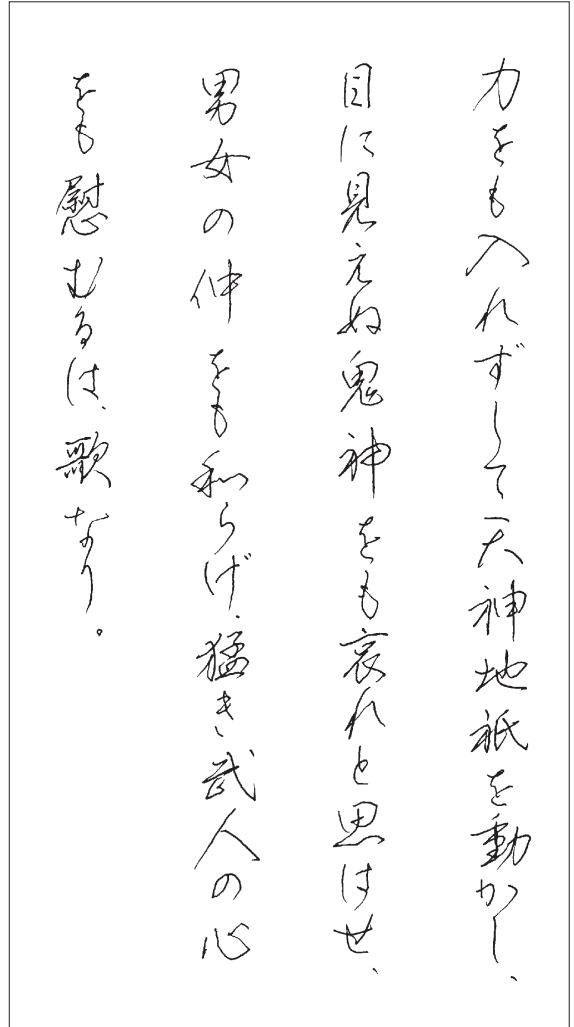 力をも入れずして天神地祇を動かし、
目に見えぬ鬼神をも哀れと思はせ、
男女の仲をも和らげ、猛き武人の心
をも慰むるは、歌なり。